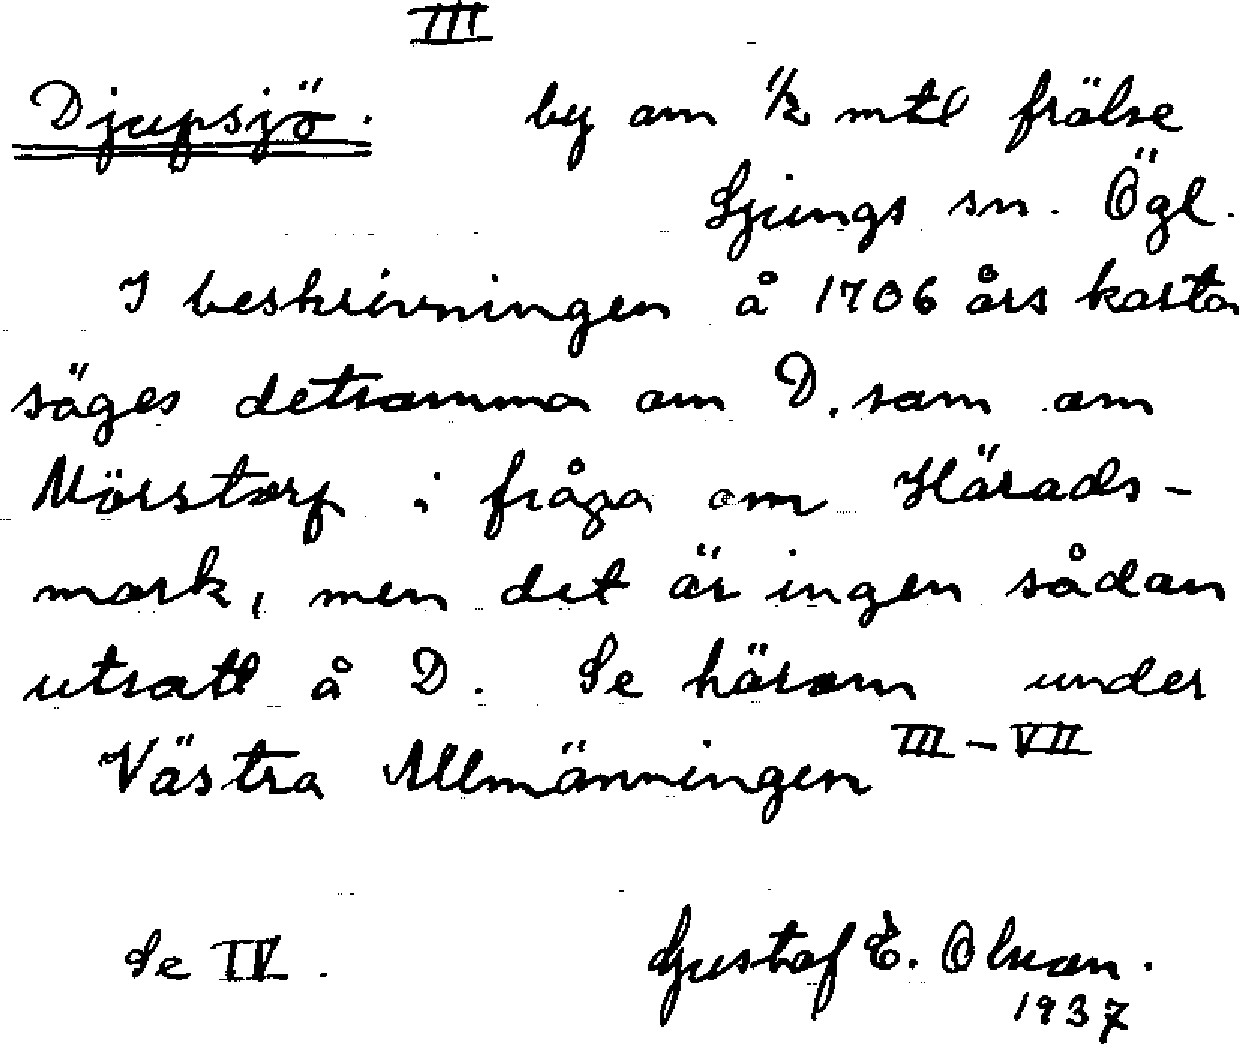 III
Djupsjö. by om 1/2 mtl frälse
Ljungs sn. Ögl.
I beskrivningen å 1706 års karta
säges detsamma om D. som om
Mörstorp i fråga om Härads-
mark, men det är ingen sådan
utsatt å D. Se härom under
Västra Allmänningen III-VII
Se IV. Gustaf E. Olson.
1937